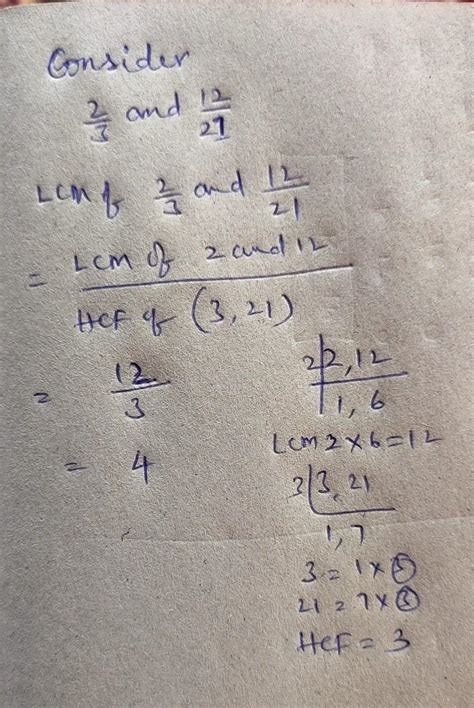 Consider
2/3 and 12/21
LCM of 2/3 and 12/21
= LCM of 2 and 12 / HCF of (3,21)
= 12/3
= 4
2|2,12
1,6
LCM 2×6=12
3|3,21
1,7
3=1×③
21=7×③
HCF=3